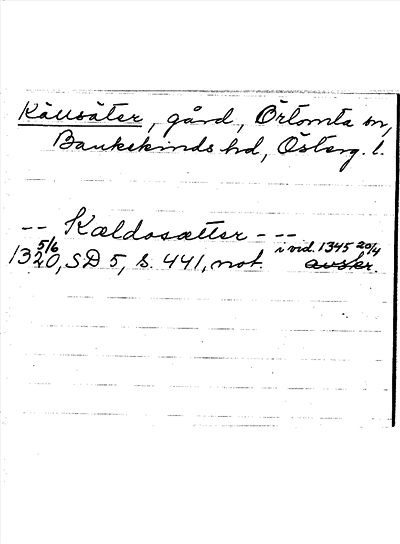 Källsäter, gård, Örtomta sn,
Bankekinds hd, Österg. l.
-- Kældosætter --
1320 5/6, SD 5, s. 441, not. i vid. 1345 20/4
avskr.